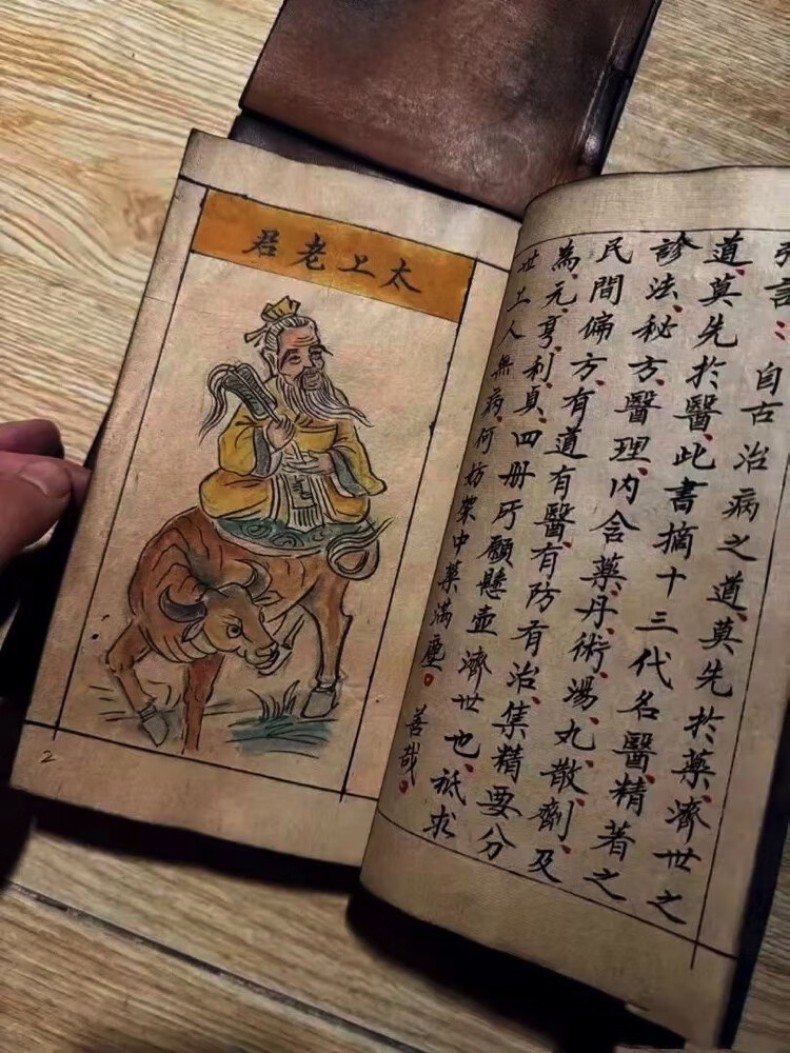 太上老君
2
引言：自古治病之道、莫先於藥、濟世之
道、莫先於醫、此書摘十三代名醫精著之
診法、秘方、醫理、內含藥、丹、術、湯、丸、散、劑、及
民間偏方、有道有醫、有防有治、集精要分
為、元、亨、利、貞、四册所願懸壺濟世也、祗求
世上人無病、何妨架中藥滿塵。善哉。